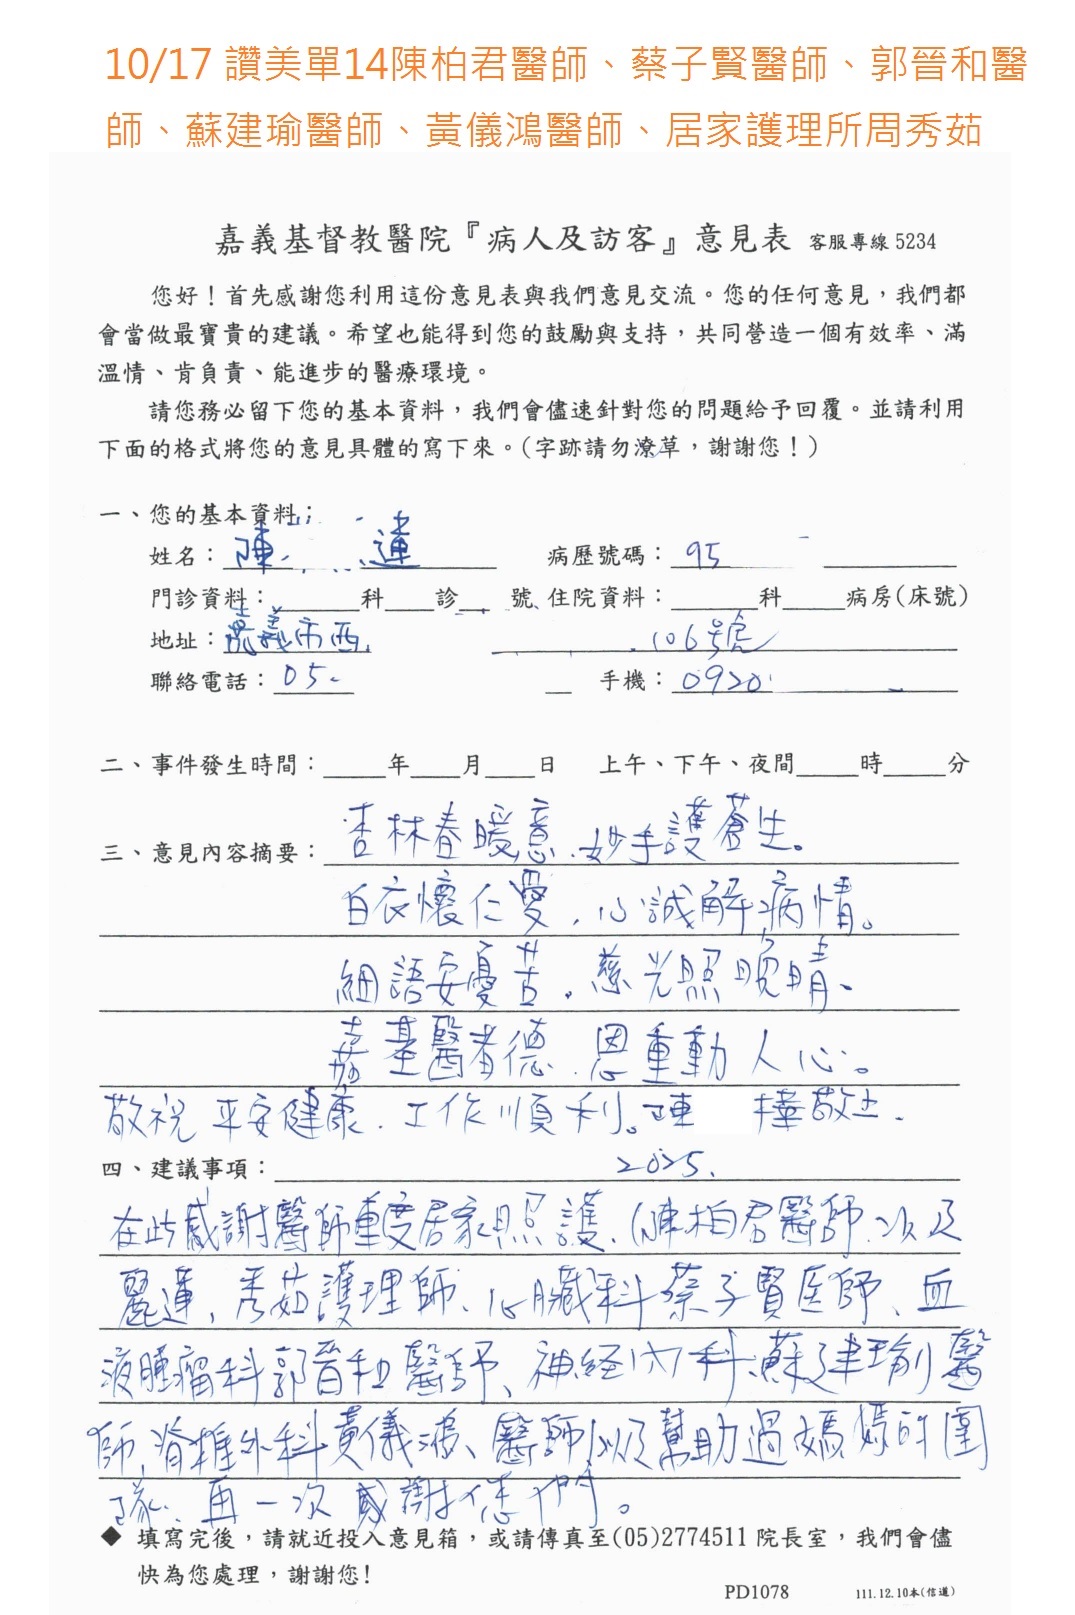 10/17 讚美單14陳柏君醫師、蔡子賢醫師、郭晉和醫
師、蘇建瑜醫師、黃儀鴻醫師、居家護理所周秀茹
嘉義基督教醫院『病人及訪客』意見表 客服專線 5234
您好！首先感謝您利用這份意見表與我們意見交流。您的任何意見，我們都
會當做最寶貴的建議。希望也能得到您的鼓勵與支持，共同營造一個有效率、滿
溫情、肯負責、能進步的醫療環境。
請您務必留下您的基本資料，我們會儘速針對您的問題給予回覆。並請利用
下面的格式將您的意見具體的寫下來。(字跡請勿潦草，謝謝您！)
一、您的基本資料：
姓名：陳 蓮 病歷號碼：95
門診資料：____科____診____號、住院資料：____科____病房(床號)
地址：嘉義市西 106號
聯絡電話：05- 手機：0920
二、事件發生時間：____年____月____日 上午、下午、夜間____時____分
三、意見內容摘要：杏林春暖意，妙手護蒼生。
白衣懷仁愛，心誠解病情。
細語安憂苦，慈光照晚晴。
嘉基醫者德，恩重動人心。
敬祝 平安健康，工作順利。陳 樺敬上.
四、建議事項： 2025.
在此感謝醫師重度居家照護，(陳柏君醫師.以及
麗蓮，秀茹護理師、心臟科蔡子賢医師、血
液腫瘤科郭晉和醫師、神经內科蘇建瑜醫
師，脊椎外科黃儀鴻、醫師以及幫助過媽媽的團
隊，再一次感謝您們。
◆ 填寫完後，請就近投入意見箱，或請傳真至(05)2774511 院長室，我們會儘
快為您處理，謝謝您!
PD1078 111.12.10本(信選)